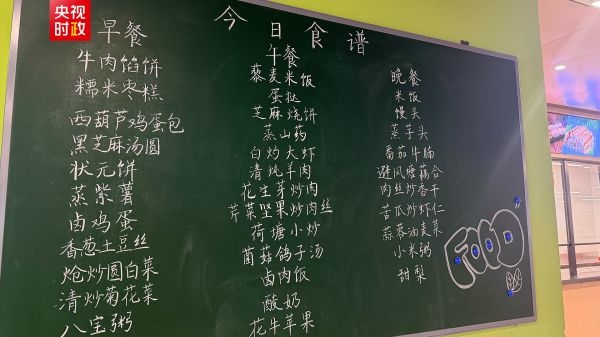 央视
时政
今日食谱
早餐
牛肉馅饼
糯米枣糕
西葫芦鸡蛋包
黑芝麻汤圆
状元饼
蒸紫薯
卤鸡蛋
香葱土豆丝
炝炒圆白菜
清炒菊花菜
八宝粥
午餐
藜麦米饭
蛋挞
芝麻烧饼
蒸山药
白灼大虾
清炖羊肉
花生芽炒肉
芹菜坚果炒肉丝
荷塘小炒
菌菇鸽子汤
卤肉饭
酸奶
花牛苹果
晚餐
米饭
馒头
蒸芋头
番茄牛腩
避风塘藕合
肉丝炒香干
苦瓜炒虾仁
蒜蓉油麦菜
小米粥
甜梨
FOOD